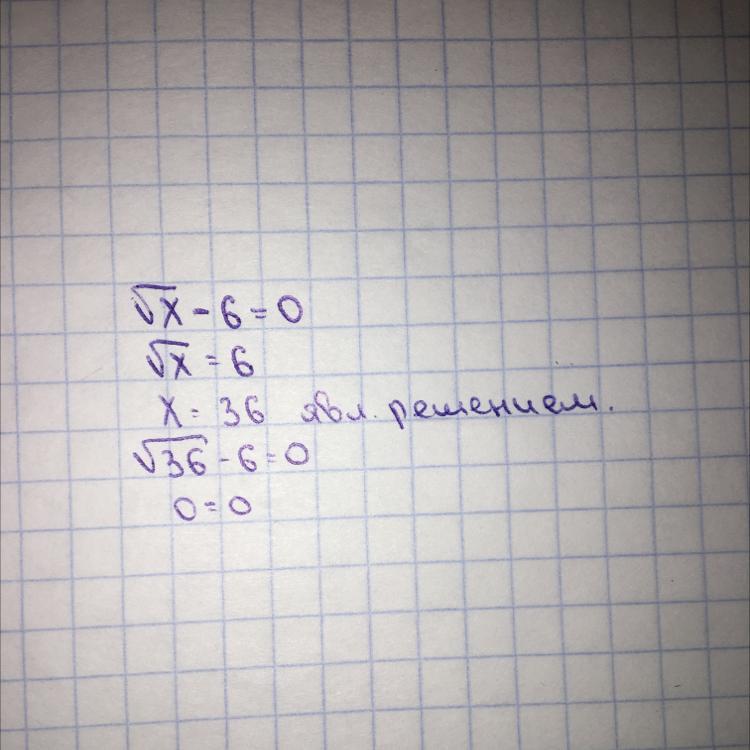 √x - 6 = 0
√x = 6
x = 36 явл. решением.
√36 - 6 = 0
0 = 0